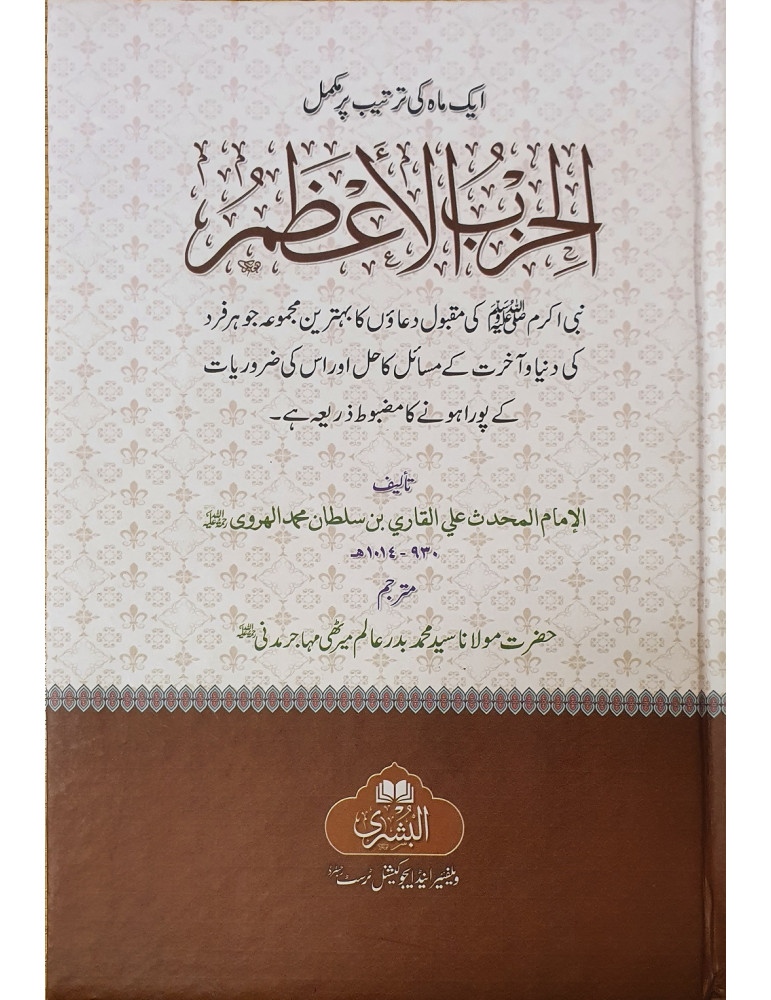 ایک ماہ کی ترتیب پر مکمل
الحِزبُ الأَعْظَمُ
نبی اکرم ﷺ کی مقبول دعاؤں کا بہترین مجموعہ جو ہر فرد
کی دنیا و آخرت کے مسائل کا حل اور اس کی ضروریات
کے پورا ہونے کا مضبوط ذریعہ ہے۔
تألیف
الإمام المحدث علي القاري بن سلطان محمد الهروي رحمہ اللہ
٩٣٠ - ١٠١٤ھ
مترجم
حضرت مولانا سید محمد بدر عالم میرٹھی مہاجر مدنی رحمہ اللہ
البُشریٰ
ویلفیئر اینڈ ایجوکیشنل ٹرسٹ رجسٹرڈ